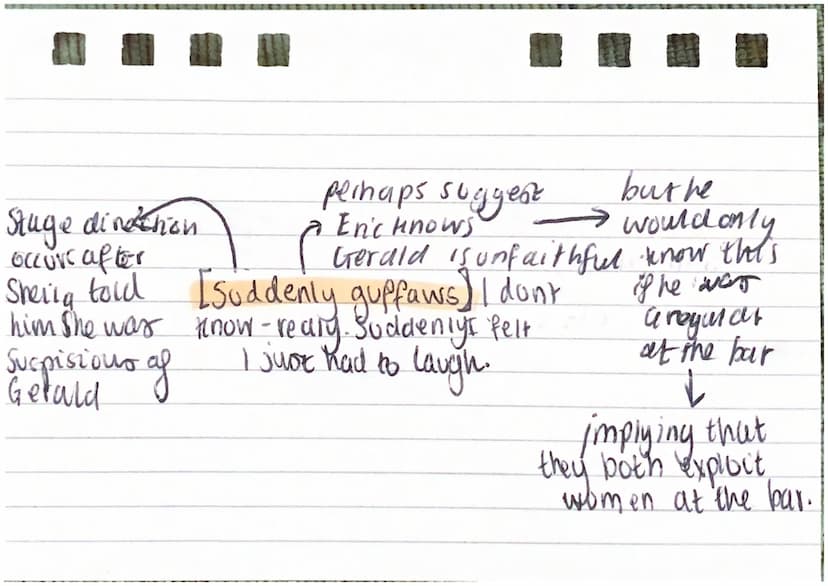 Stage direction
occurs after
Sheila told
him she was
suspisious of
Gerald
perhaps suggest
Eric knows
Gerald is unfaithful
[Suddenly guffaws] I dont
know - really. Suddenly I felt
I just had to laugh.
but he
would only
know this
if he was
a regular
at the bar
implying that
they both exploit
women at the bar.